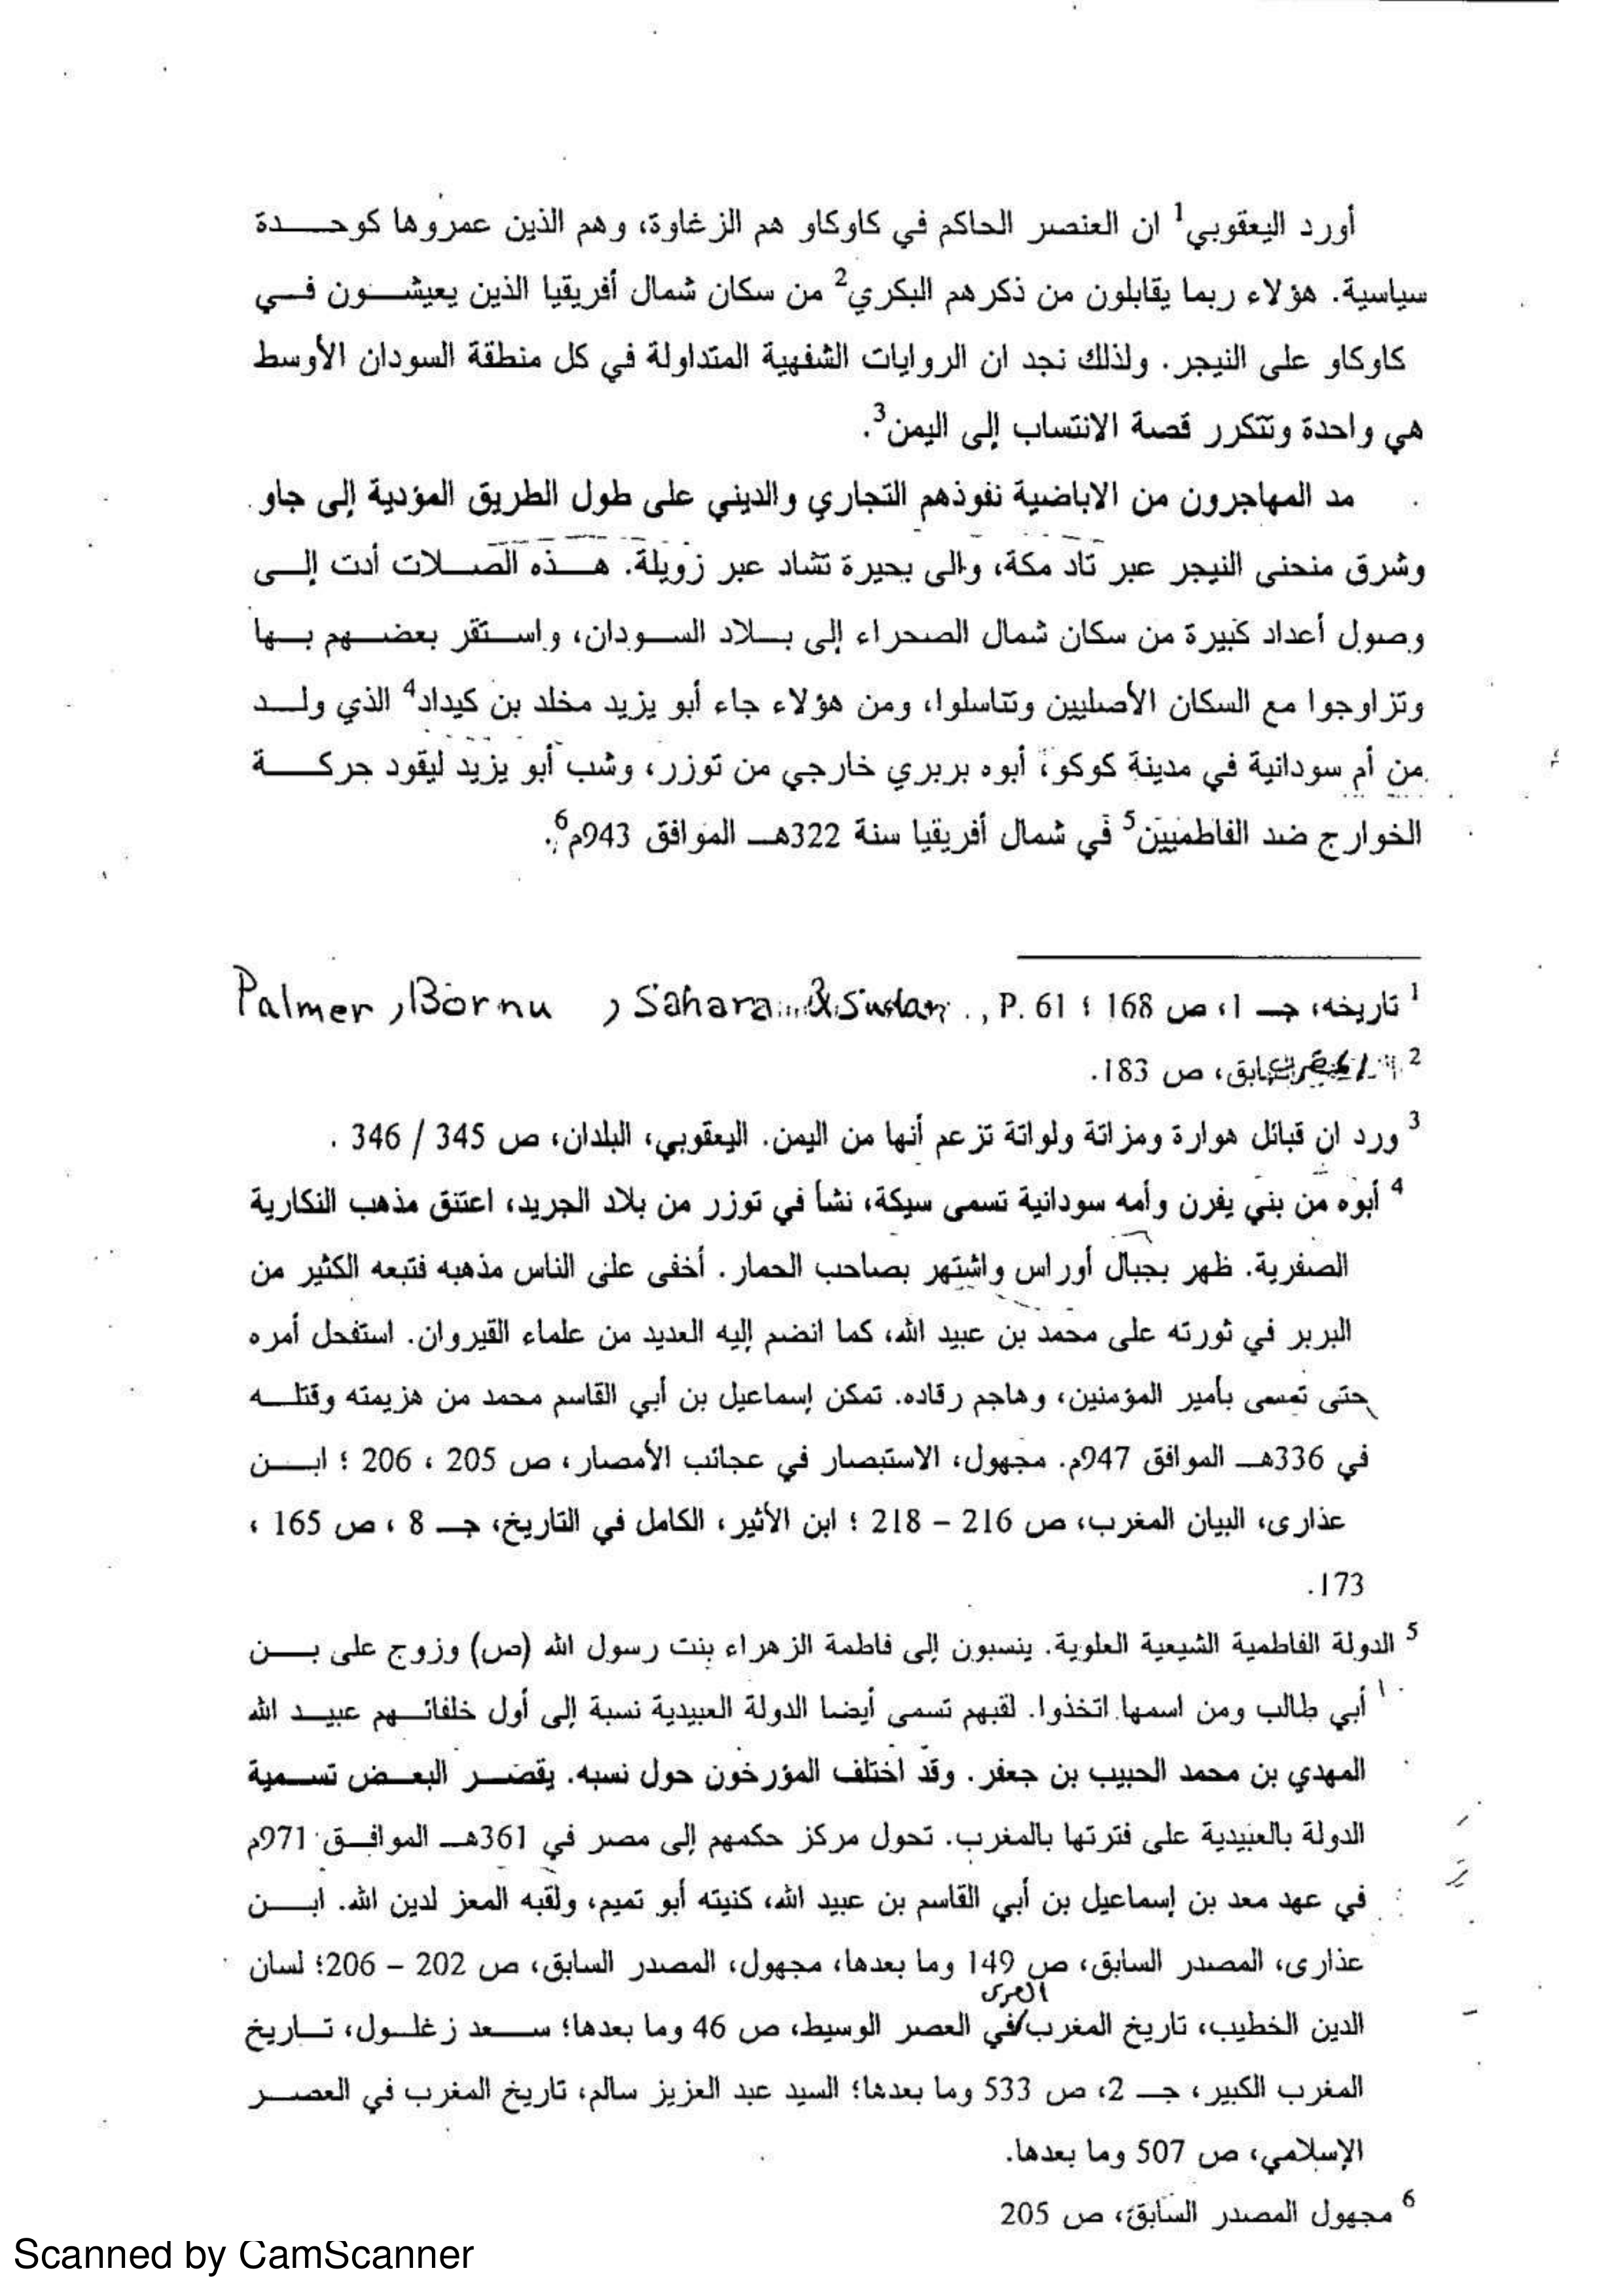 أورد اليعقوبي1 ان العنصر الحاكم في كاوكاو هم الزغاوة، وهم الذين عمروها كوحدة
سياسية. هؤلاء ربما يقابلون من ذكرهم البكري2 من سكان شمال أفريقيا الذين يعيشون في
كاوكاو على النيجر. ولذلك نجد ان الروايات الشفهية المتداولة في كل منطقة السودان الأوسط
هي واحدة وتتكرر قصة الانتساب إلى اليمن3.
مد المهاجرون من الاباضية نفوذهم التجاري والديني على طول الطريق المؤدية إلى جاو
وشرق منحنى النيجر عبر تاد مكة، والى بحيرة تشاد عبر زويلة. هذه الصلات أدت إلى
وصول أعداد كبيرة من سكان شمال الصحراء إلى بلاد السودان، واستقر بعضهم بها
وتزاوجوا مع السكان الأصليين وتناسلوا، ومن هؤلاء جاء أبو يزيد مخلد بن كيداد4 الذي ولد
من أم سودانية في مدينة كوكو، أبوه بربري خارجي من توزر، وشب أبو يزيد ليقود حركة
الخوارج ضد الفاطميين5 في شمال أفريقيا سنة 322هـ الموافق 943م6.
1 تاريخه، جـ 1، ص 168 ؛ Palmer, Bornu , Sahara & Sudan ., P. 61
2 السابق، ص 183.
3 ورد ان قبائل هوارة ومزاتة ولواتة تزعم أنها من اليمن. اليعقوبي، البلدان، ص 345 / 346 .
4 أبوه من بني يفرن وأمه سودانية تسمى سيكة، نشأ في توزر من بلاد الجريد، اعتنق مذهب النكارية
الصفرية. ظهر بجبال أوراس واشتهر بصاحب الحمار. أخفى على الناس مذهبه فتبعه الكثير من
البربر في ثورته على محمد بن عبيد الله، كما انضم إليه العديد من علماء القيروان. استفحل أمره
حتى تمسى بأمير المؤمنين، وهاجم رقاده. تمكن إسماعيل بن أبي القاسم محمد من هزيمته وقتله
في 336هـ الموافق 947م. مجهول، الاستبصار في عجائب الأمصار، ص 205 ، 206 ؛ ابن
عذارى، البيان المغرب، ص 216 – 218 ؛ ابن الأثير، الكامل في التاريخ، جـ 8 ، ص 165 ،
173.
5 الدولة الفاطمية الشيعية العلوية. ينسبون إلى فاطمة الزهراء بنت رسول الله (ص) وزوج على بن
أبي طالب ومن اسمها اتخذوا. لقبهم تسمى أيضا الدولة العبيدية نسبة إلى أول خلفائهم عبيد الله
المهدي بن محمد الحبيب بن جعفر. وقد اختلف المؤرخون حول نسبه. يقصر البعض تسمية
الدولة بالعبيدية على فترتها بالمغرب. تحول مركز حكمهم إلى مصر في 361هـ الموافق 971م
في عهد معد بن إسماعيل بن أبي القاسم بن عبيد الله، كنيته أبو تميم، ولقبه المعز لدين الله. ابن
عذارى، المصدر السابق، ص 149 وما بعدها، مجهول، المصدر السابق، ص 202 – 206؛ لسان
العربى
الدين الخطيب، تاريخ المغرب/في العصر الوسيط، ص 46 وما بعدها؛ سعد زغلول، تاريخ
المغرب الكبير، جـ 2، ص 533 وما بعدها؛ السيد عبد العزيز سالم، تاريخ المغرب في العصر
الإسلامي، ص 507 وما بعدها.
6 مجهول المصدر السابق، ص 205
Scanned by CamScanner